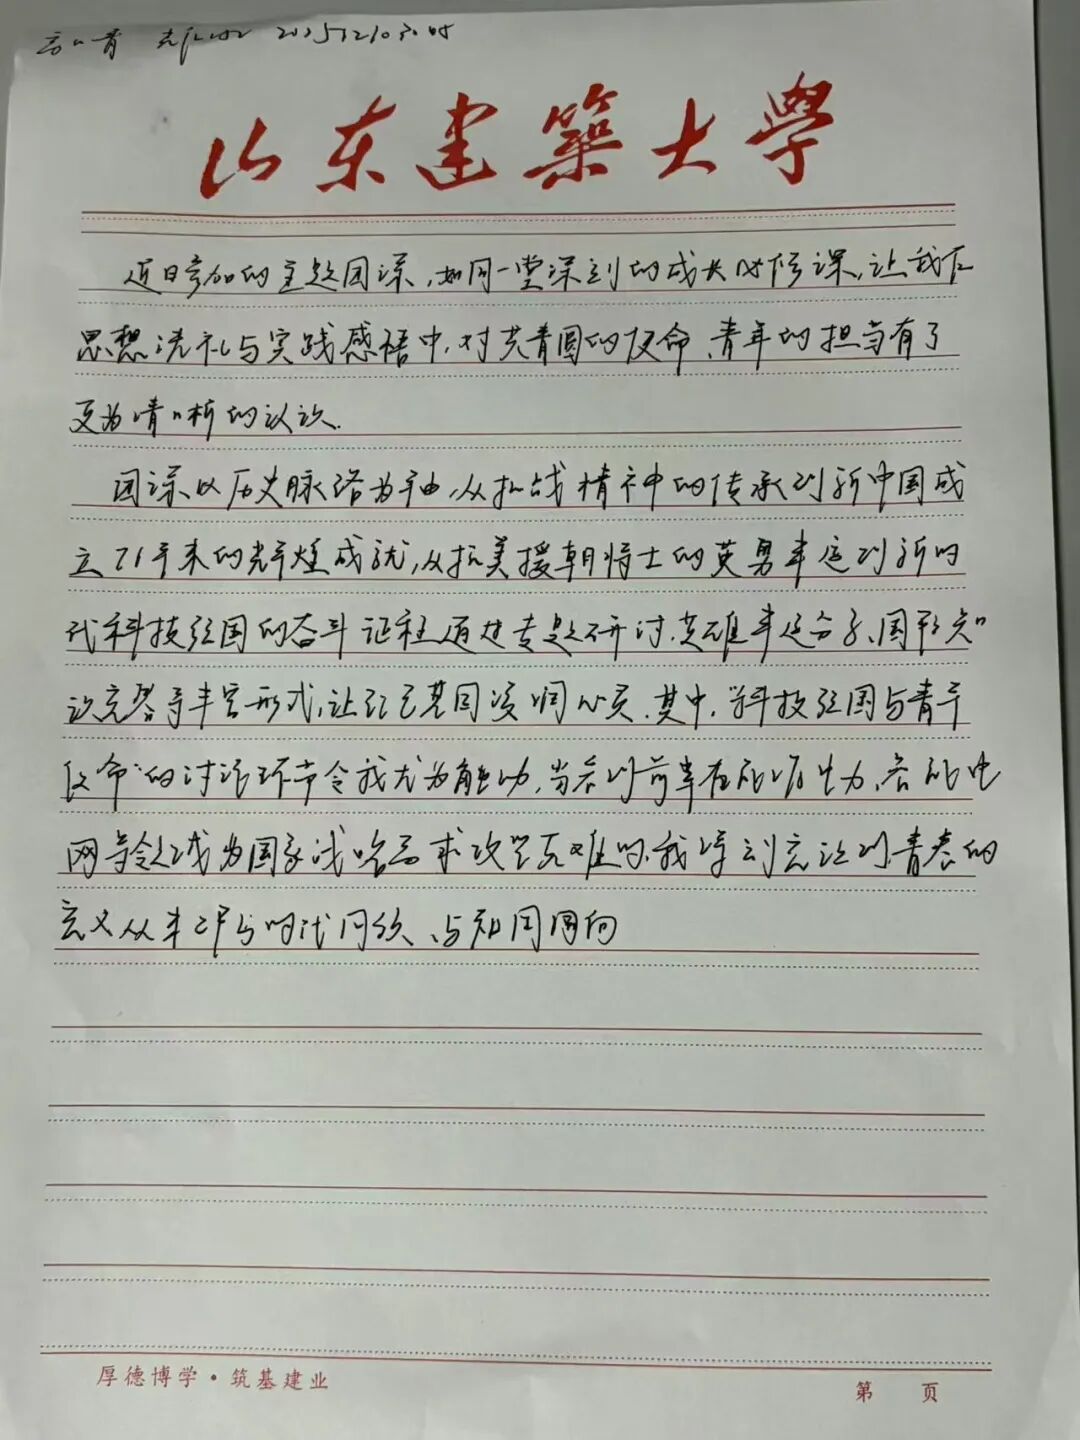 山东建築大學
近日参加的主题团课,如同一堂深刻的成长必修课,让我在
思想洗礼与实践感悟中,对共青团的使命、青年的担当有了
更为清晰的认识.
团课以历史脉络为轴,从抗战精神的传承到新中国成
立71年来的辉煌成就,从抗美援朝将士的英勇事迹到新时
代科技强国的奋斗征程通过专题研讨、英雄事迹分享、国形知
识竞答等丰富形式,让红色基因浸润心灵.其中,"科技强国与青年
使命"的讨论环节令我尤为触动,当看到前辈在能源电力、智能电
网等领域为国家战略需求攻坚克难时,我深刻意识到,青春的
意义从来都与时代同频、与祖国同向
厚德博学·筑基建业
第 页